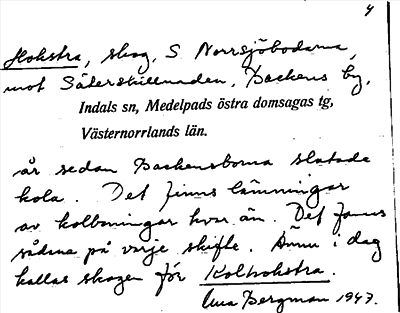 4
Hokstra, skog, S Norrsjöbodarna,
mot Säterskillnaden, Backens by,
Indals sn, Medelpads östra domsagas tg,
Västernorrlands län.
år sedan Backensborna slutade
kola. Det finns lämningar
av kolbottningar kvar än. Det fanns
sådana på varje skifte. Ännu i dag
kallas skogen för Kolhokstra.
Bergman 1947.